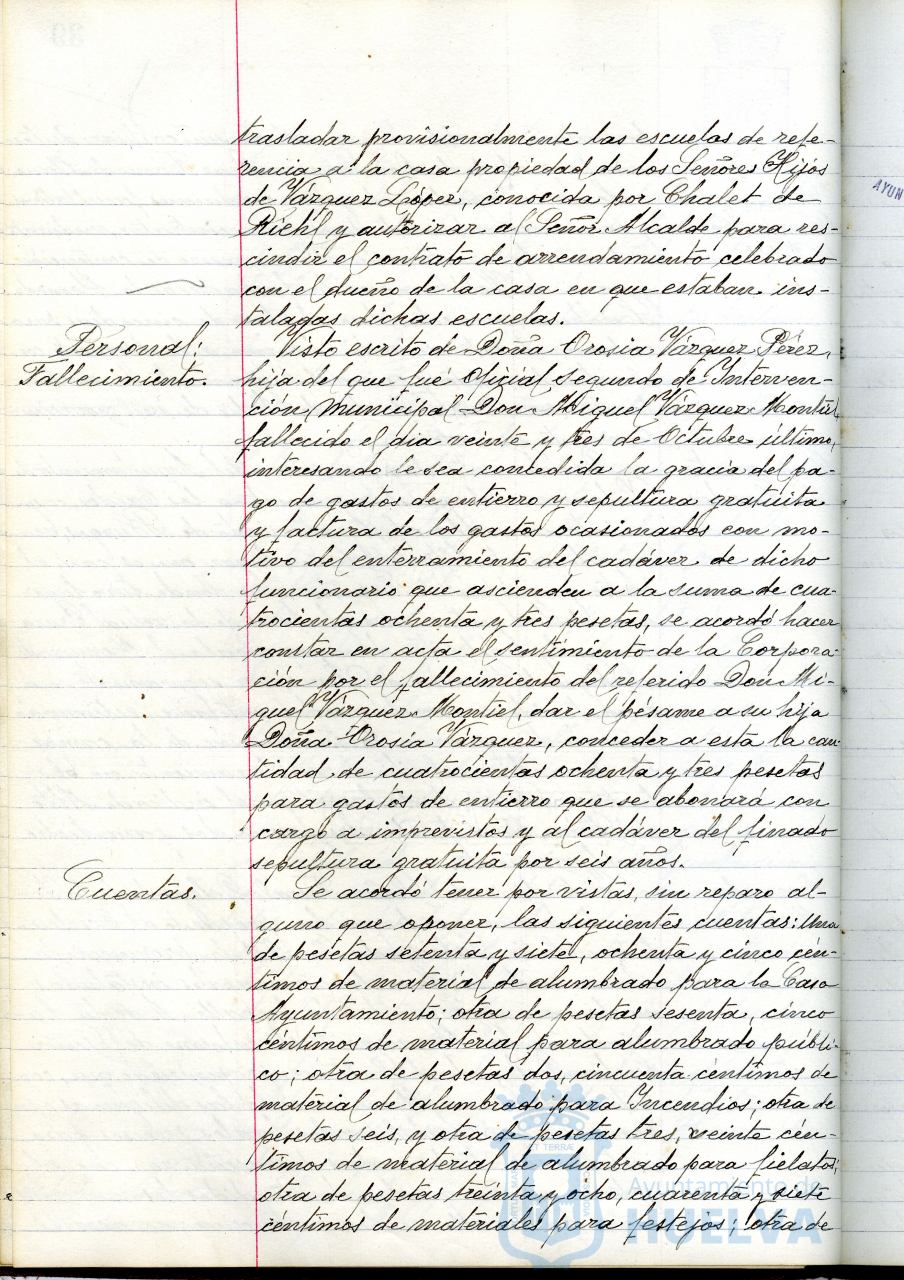 trasladar provisionalmente las escuelas de refe-
rencia a la casa propiedad de los Señores Hijos
de Vázquez López, conocida por Chalet de
Riehl y autorizar al Señor Alcalde para res-
cindir el contrato de arrendamiento celebrado
con el dueño de la casa en que estaban ins-
taladas dichas escuelas.
Personal:
Fallecimiento.
Visto escrito de Doña Orosia Vázquez Pérez,
hija del que fué Oficial segundo de Interven-
ción municipal Don Miguel Vázquez Montiel,
fallecido el dia veinte y tres de Octubre último,
interesando le sea concedida la gracia del pa-
go de gastos de entierro y sepultura gratuita
y factura de los gastos ocasionados con mo-
tivo del enterramiento del cadáver de dicho
funcionario que ascienden a la suma de cua-
trocientas ochenta y tres pesetas, se acordó hacer
constar en acta el sentimiento de la Corpora-
ción por el fallecimiento del referido Don Mi-
guel Vázquez Montiel, dar el pésame a su hija
Doña Orosia Vázquez, conceder a esta la can-
tidad de cuatrocientas ochenta y tres pesetas
para gastos de entierro que se abonará con
cargo a imprevistos y al cadáver del finado
sepultura gratuita por seis años.
Cuentas.
Se acordó tener por vistas, sin reparo al-
guno que oponer, las siguientes cuentas: una
de pesetas setenta y siete, ochenta y cinco cén-
timos de material de alumbrado para la Casa
Ayuntamiento; otra de pesetas sesenta, cinco
céntimos de material para alumbrado públi-
co; otra de pesetas dos, cincuenta céntimos de
material de alumbrado para Incendios; otra de
pesetas seis, y otra de pesetas tres, veinte cén-
timos de material de alumbrado para fielatos;
otra de pesetas treinta y ocho, cuarenta y siete
céntimos de materiales para festejos; otra de
AYUN
Ayuntamiento de
HUELVA